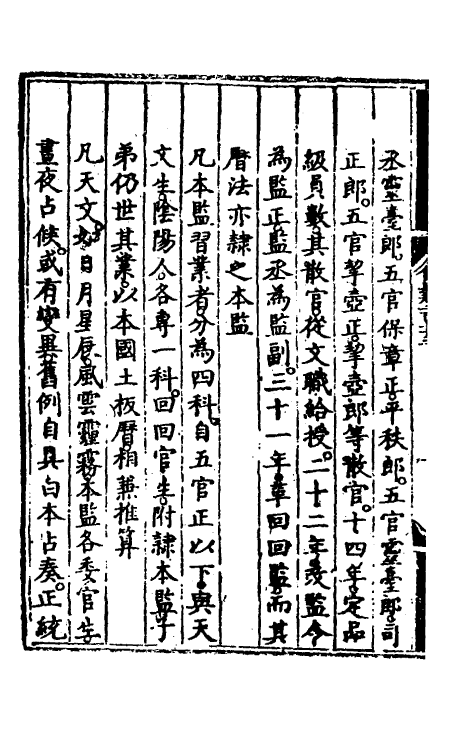 丞靈臺郎。五官保章正。平秩郎。五官靈臺郎。司
正郎。五官挈壺正。挈壺郎等散官。十四年。定品
級員數。其散官。從文職給授。二十二年。改監令
為監正。監丞為監副。三十一年。革回回監。而其
曆法亦隸之本監
凡本監習業者。分為四科。自五官正以下。與天
文生。陰陽人。各專一科。回回官生。附隸本監。子
弟仍世其業。以本國土板曆相兼推算
凡天文。如日月星辰。風雲霾霧。本監各委官生。
晝夜占候。或有變異。舊例自具白本占奏。正統